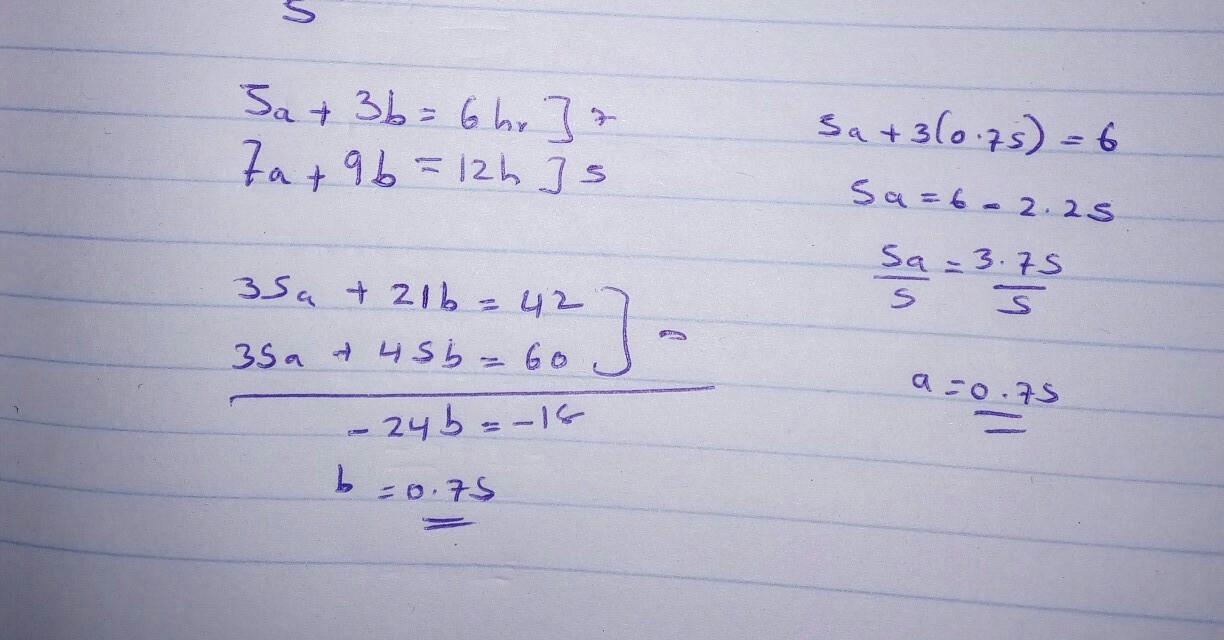 5
5a + 3b = 6hr ] 7
7a + 9b = 12h ] 5
35a + 21b = 42
35a + 45b = 60 ] -
- 24b = -18
b = 0.75
5a + 3(0.75) = 6
5a = 6 - 2.25
5a = 3.75
5 5
a = 0.75